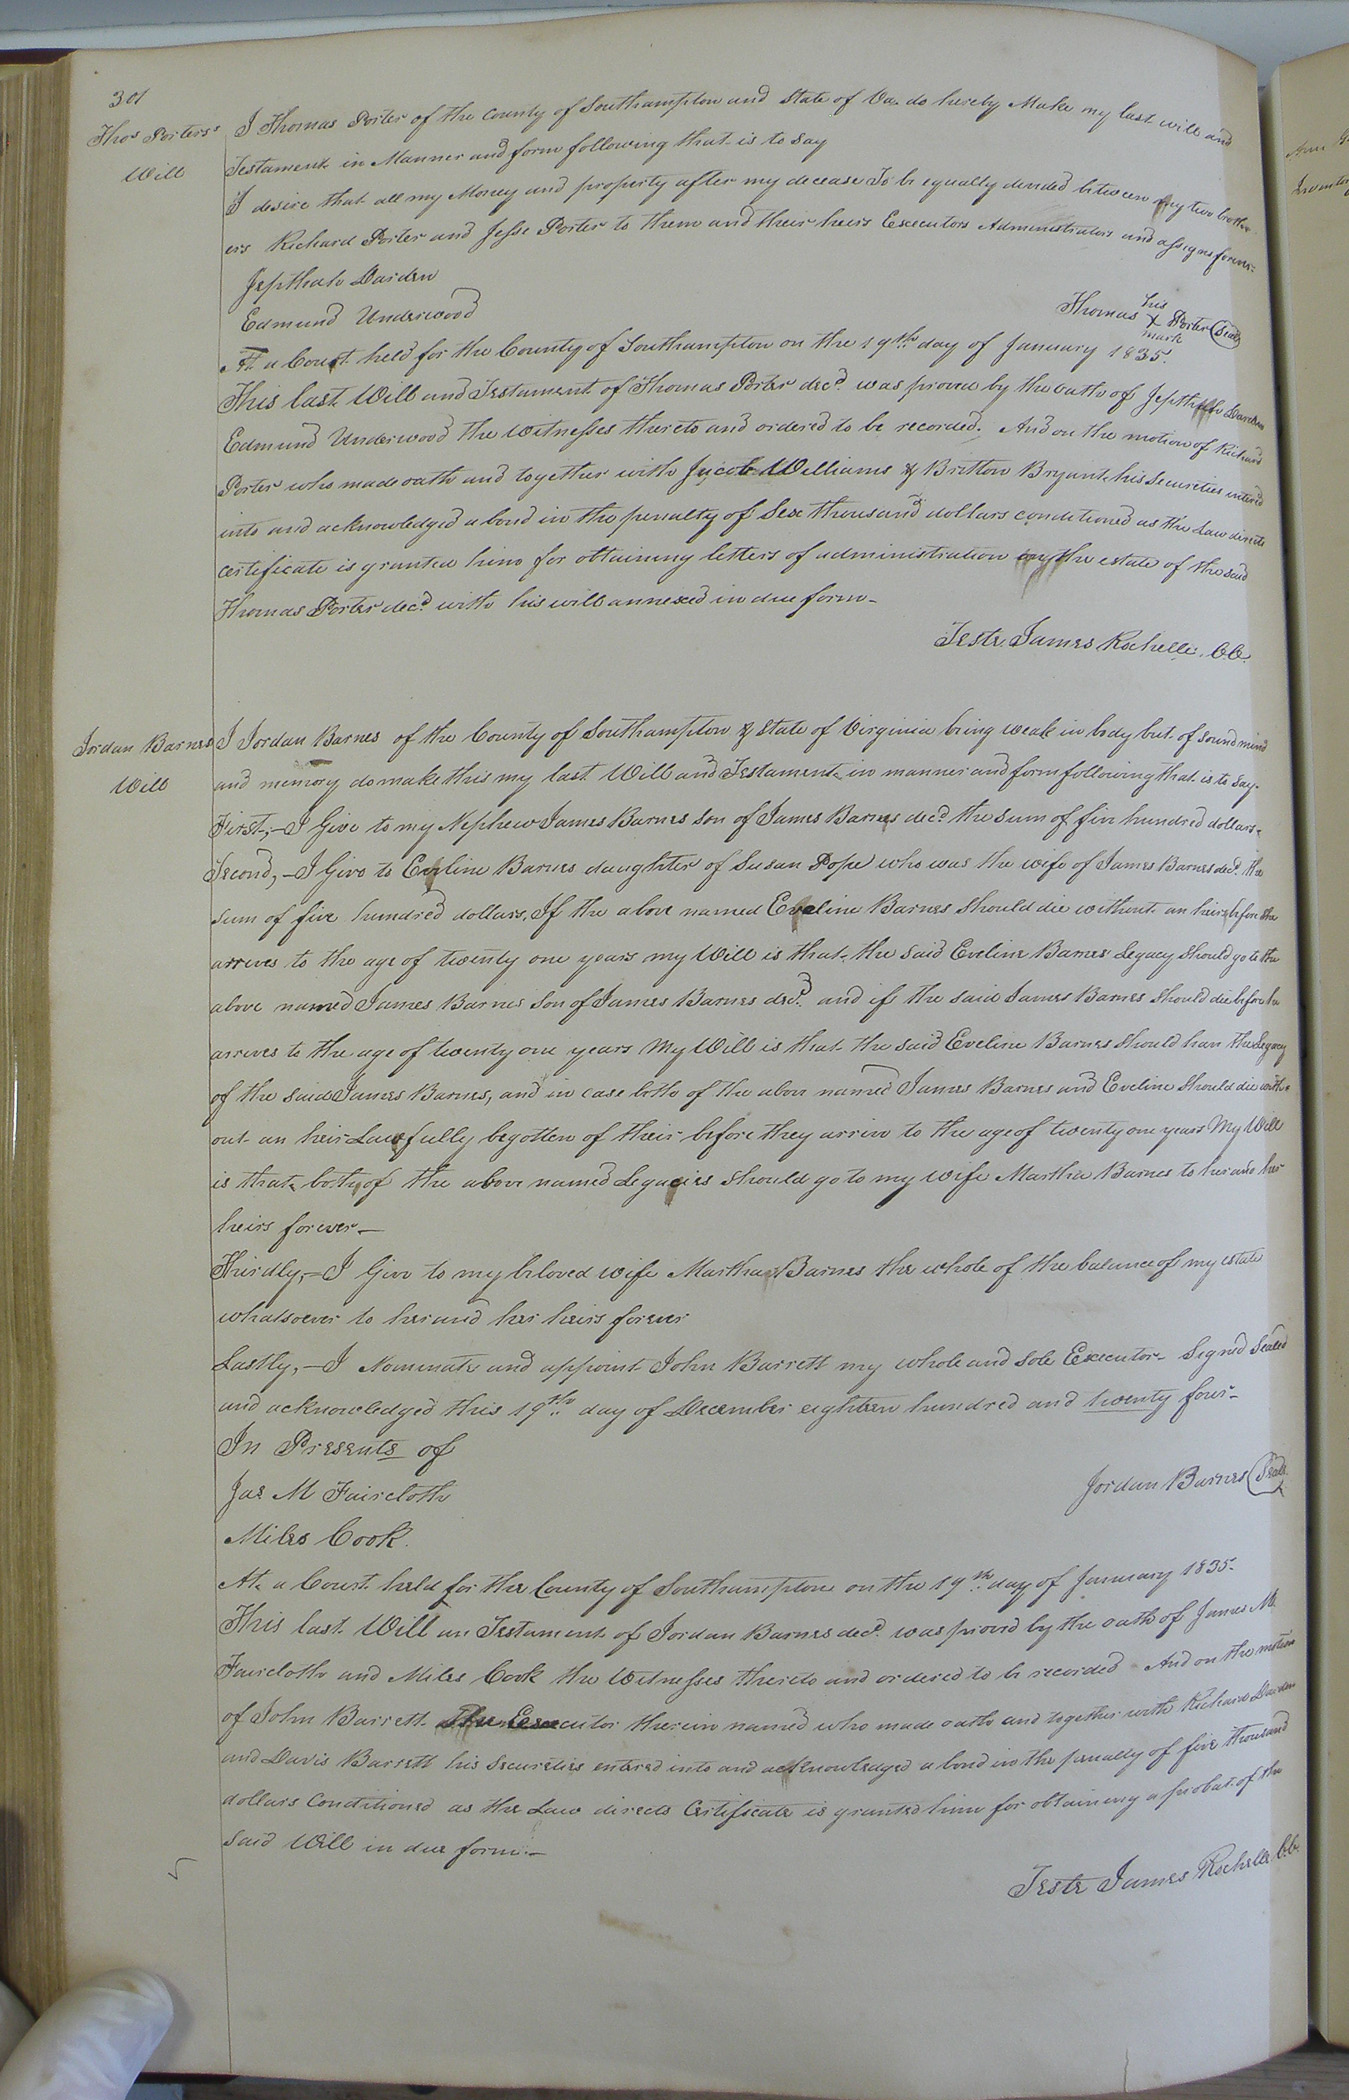 301
Thos Porters
Will
I Thomas Porter of the County of Southampton and State of Va. do hereby Make my last will and
Testament in Manner and form following that is to say
I desire that all my Money and property after my decease To be equally devided between my two broth-
ers Richard Porter and Jesse Porter to them and their heirs Executors Administrators and assigns forever-
Jepthah Darden
Edmund Underwood
Thomas his X mark Porter (Seal)
At a Court held for the County of Southampton on the 19th day of January 1835.
This last Will and Testament of Thomas Porter decd. was proven by the oath of Jepthah Darden
Edmund Underwood the witnesses thereto and ordered to be recorded. And on the motion of Richard
Porter who made oath and together with Jacob Williams & Britton Bryant his Securities entered
into and acknowledged a bond in the penalty of Six thousand dollars conditioned as the Law directs
certificate is granted him for obtaining letters of administration on the estate of the said
Thomas Porter decd. with his will annexed in due form-
Teste James Rochelle. C.C.
Jordan Barnes
Will
I Jordan Barnes of the County of Southampton & State of Virginia being weak in body but of sound mind
and memory do make this my last Will and Testament in manner and form following that is to say-
First,- I Give to my Nephew James Barnes son of James Barnes decd. the sum of five hundred dollars-
Second,- I Give to Eveline Barnes daughter of Susan Pope who was the wife of James Barnes decd. the
sum of five hundred dollars, If the above named Eveline Barnes should die without an heir before she
arrives to the age of twenty one years my Will is that the said Eveline Barnes Legacy should go to the
above named James Barnes son of James Barnes decd. and if the said James Barnes should die before he
arrives to the age of twenty one years My Will is that the said Eveline Barnes should have the Legacy
of the said James Barnes, and in case both of the above named James Barnes and Eveline should die with-
out an heir Lawfully begotten of their before they arrive to the age of twenty one years My Will
is that both of the above named Legacies should go to my wife Martha Barnes to her and her
heirs forever-
Thirdly,- I Give to my beloved wife Martha Barnes the whole of the balance of my estate
whatsoever to her and her heirs forever
Lastly,- I Nominate and appoint John Barrett my whole and sole Executor- Signed Sealed
and acknowledged this 19th day of December eighteen hundred and twenty four-
In Presents of
Jas M Faircloth
Miles Cook.
Jordan Barnes (Seal)
At a Court held for the County of Southampton on the 19th day of January 1835.
This last Will an Testament of Jordan Barnes decd. was proved by the oath of James M.
Faircloth and Miles Cook the Witnesses thereto and ordered to be recorded. And on the motion
of John Barrett the Executor therein named who made oath and together with Richard Darden
and Davis Barrett his Securities entered into and acknowledged a bond in the penalty of five thousand
dollars Conditioned as the Law directs Certificate is granted him for obtaining a probat of the
said Will in due form.-
Teste James Rochelle C.C.